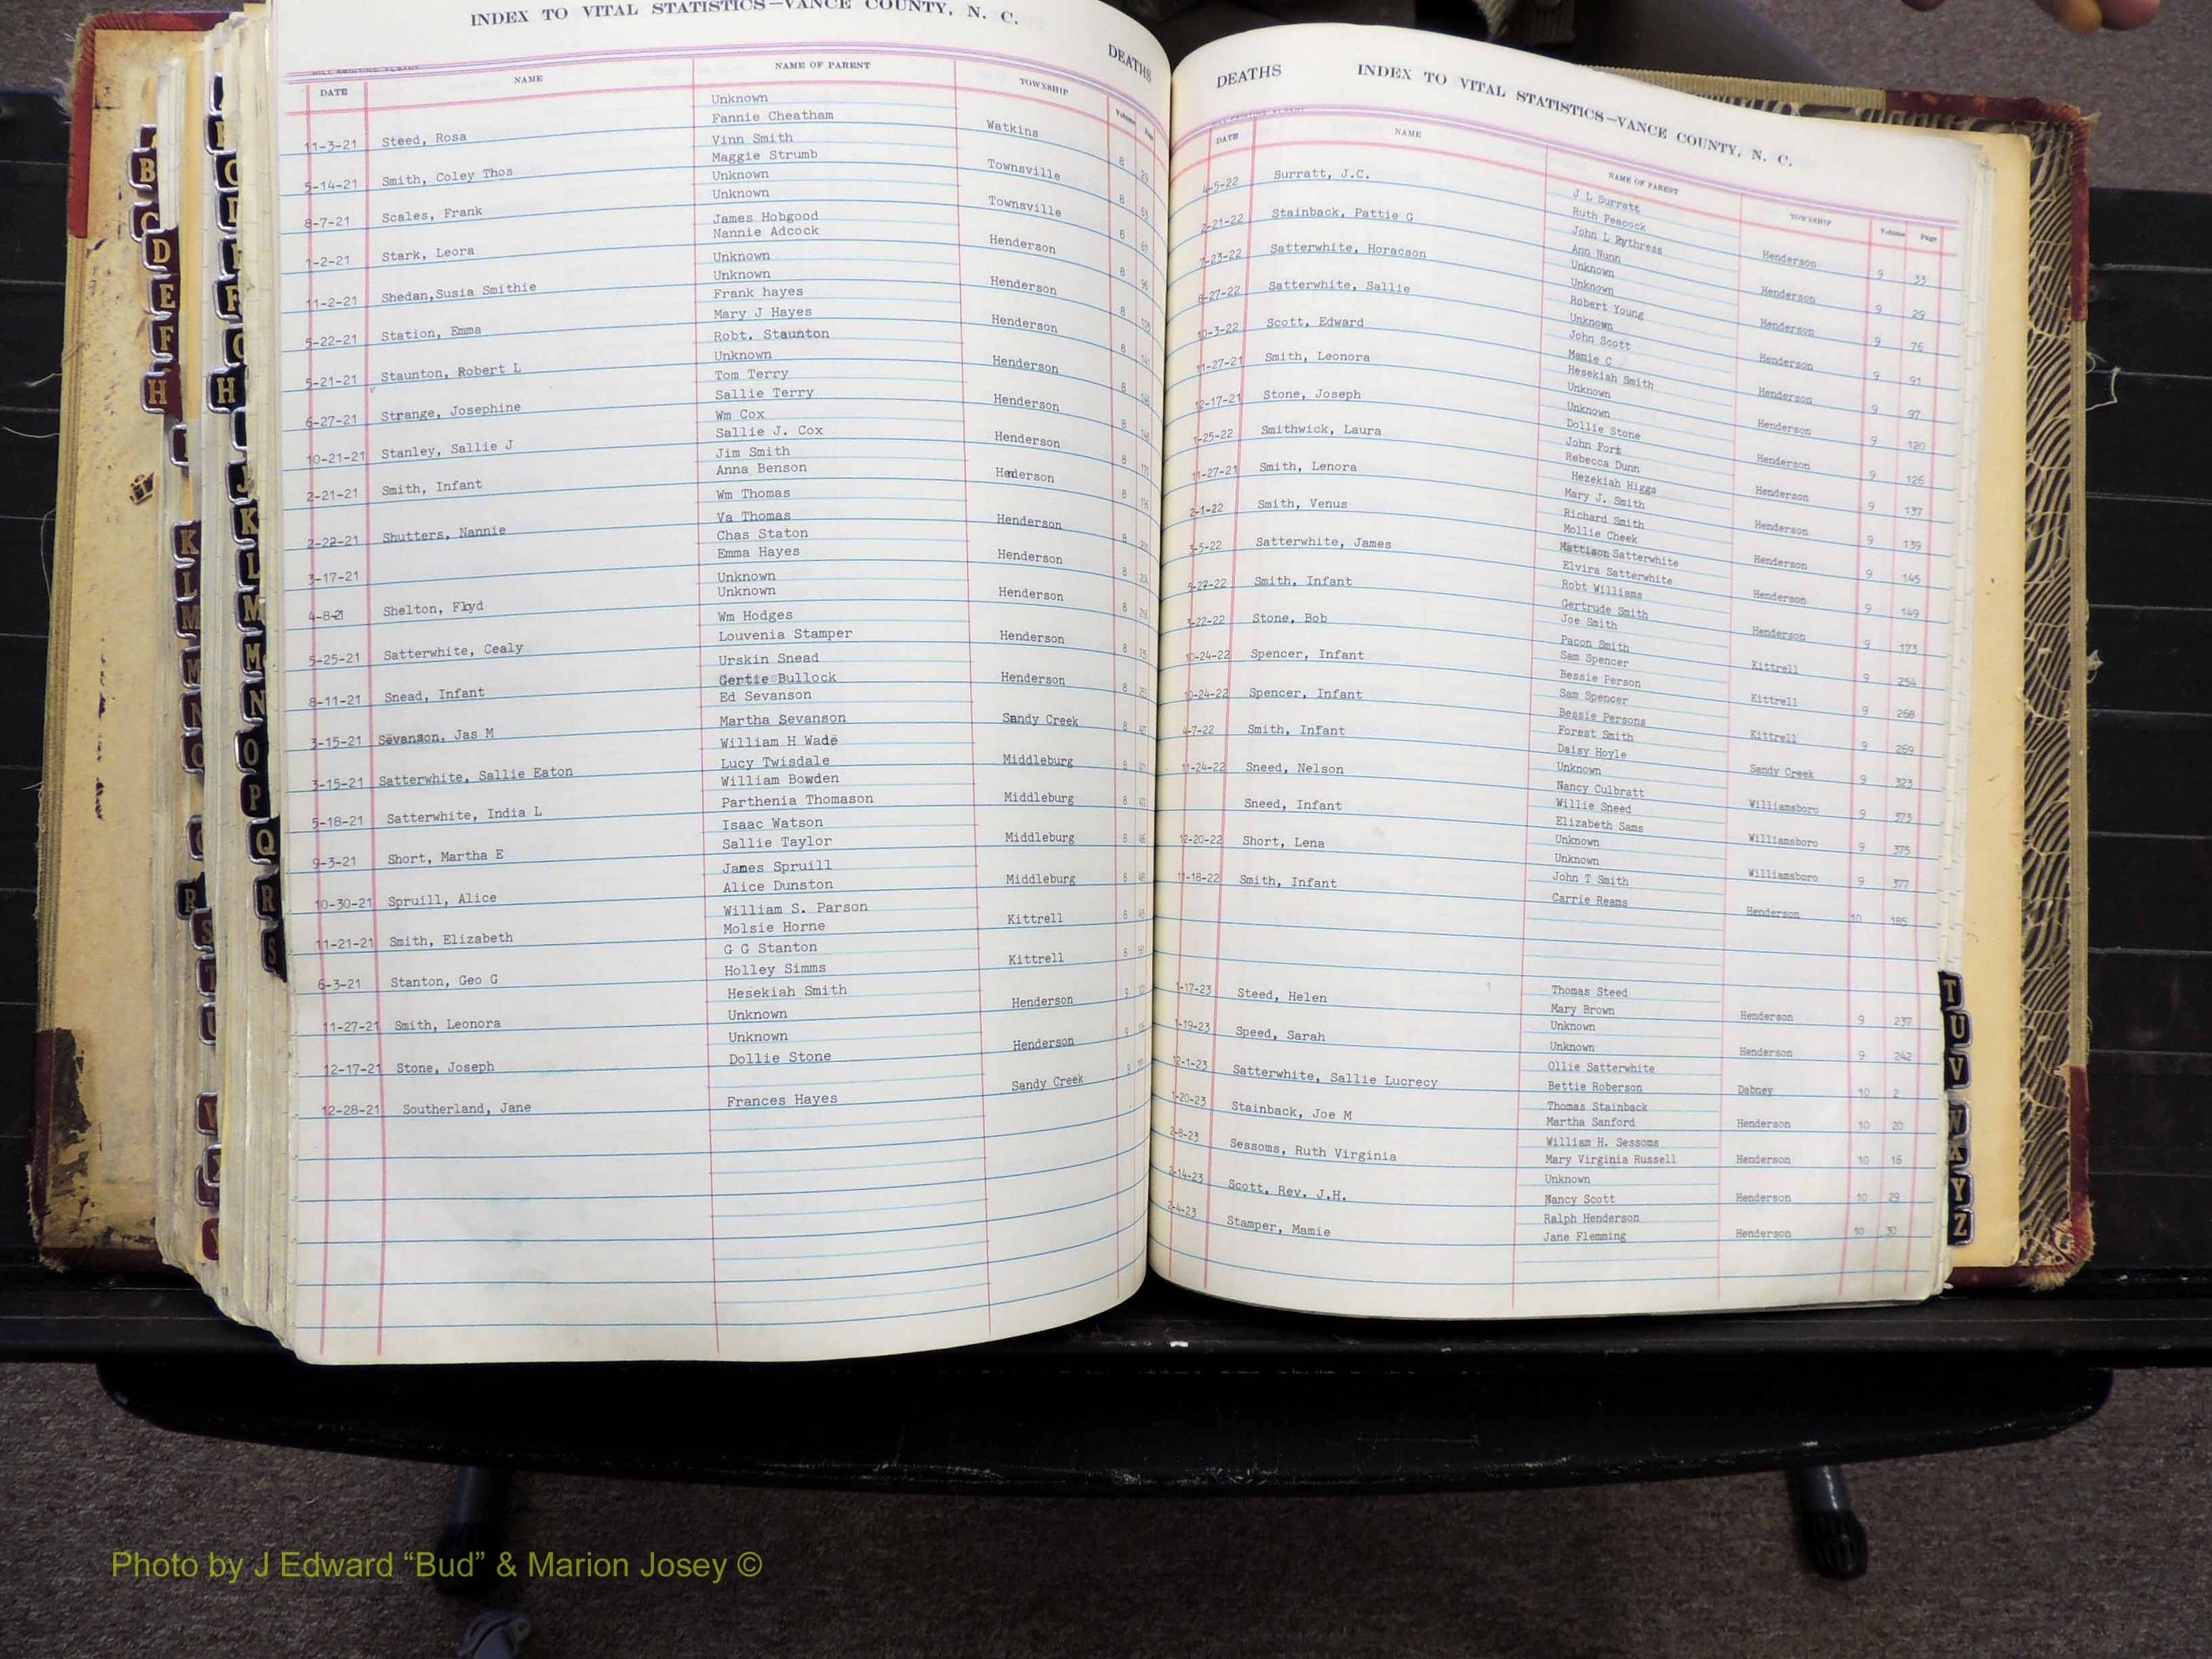 INDEX TO VITAL STATISTICS—VANCE COUNTY, N. C.
DEATHS
DATE NAME NAME OF PARENT TOWNSHIP Volume Page
11-3-21 Steed, Rosa Unknown Watkins 8
Fannie Cheatham
5-14-21 Smith, Coley Thos Vinn Smith Townsville 8
Maggie Strumb
8-7-21 Scales, Frank Unknown Townsville 8
Unknown
1-2-21 Stark, Leora James Hobgood Henderson 8
Nannie Adcock
11-2-21 Shedan,Susia Smithie Unknown Henderson 8
Unknown
5-22-21 Station, Emma Frank hayes Henderson 8
Mary J Hayes
5-21-21 Staunton, Robert L Robt. Staunton Henderson 8
Unknown
6-27-21 Strange, Josephine Tom Terry Henderson 8
Sallie Terry
10-21-21 Stanley, Sallie J Wm Cox Henderson 8
Sallie J. Cox
2-21-21 Smith, Infant Jim Smith Henderson 8
Anna Benson
2-22-21 Shutters, Nannie Wm Thomas Henderson 8
Va Thomas
3-17-21 Chas Staton Henderson 8
Emma Hayes
4-8-21 Shelton, Floyd Unknown Henderson 8
Unknown
5-25-21 Satterwhite, Cealy Wm Hodges Henderson 8
Louvenia Stamper
8-11-21 Snead, Infant Urskin Snead Henderson 8
Gertie Bullock
3-15-21 Sevanson, Jas M Ed Sevanson Sandy Creek 8
Martha Sevanson
3-15-21 Satterwhite, Sallie Eaton William H Wade Middleburg 8
Lucy Twisdale
5-18-21 Satterwhite, India L William Bowden Middleburg 8
Parthenia Thomason
9-3-21 Short, Martha E Isaac Watson Middleburg 8
Sallie Taylor
10-30-21 Spruill, Alice James Spruill Middleburg 8
Alice Dunston
11-21-21 Smith, Elizabeth William S. Parson Kittrell 8
Molsie Horne
6-3-21 Stanton, Geo G G G Stanton Kittrell 8
Holley Simms
11-27-21 Smith, Leonora Hesekiah Smith Henderson 9
Unknown
12-17-21 Stone, Joseph Unknown Henderson 9
Dollie Stone
12-28-21 Southerland, Jane Sandy Creek 9
Frances Hayes
DEATHS INDEX TO VITAL STATISTICS—VANCE COUNTY, N. C.
DATE NAME NAME OF PARENT TOWNSHIP Volume Page
4-5-22 Surratt, J.C. J L Surratt Henderson 9 33
Ruth Peacock
2-21-22 Stainback, Pattie G John L Rythress Henderson 9 29
Ann Nunn
7-23-22 Satterwhite, Horacson Unknown Henderson 9 76
Unknown
8-27-22 Satterwhite, Sallie Robert Young Henderson 9 91
Unknown
10-3-22 Scott, Edward John Scott Henderson 9 97
Mamie C
11-27-21 Smith, Leonora Hesekiah Smith Henderson 9 120
Unknown
12-17-21 Stone, Joseph Unknown Henderson 9 126
Dollie Stone
1-25-22 Smithwick, Laura John Fort Henderson 9 137
Rebecca Dunn
11-27-21 Smith, Lenora Hezekiah Higgs Henderson 9 139
Mary J. Smith
2-1-22 Smith, Venus Richard Smith Henderson 9 145
Mollie Cheek
3-5-22 Satterwhite, James Mattison Satterwhite Henderson 9 149
Elvira Satterwhite
5-27-22 Smith, Infant Robt Williams Henderson 9 173
Gertrude Smith
3-22-22 Stone, Bob Joe Smith Kittrell 9 254
Pacon Smith
10-24-22 Spencer, Infant Sam Spencer Kittrell 9 268
Bessie Person
10-24-22 Spencer, Infant Sam Spencer Kittrell 9 269
Bessie Persons
4-7-22 Smith, Infant Forest Smith Sandy Creek 9 323
Daisy Hoyle
11-24-22 Sneed, Nelson Unknown Williamsboro 9 373
Nancy Culbratt
Sneed, Infant Willie Sneed Williamsboro 9 375
Elizabeth Sams
12-20-22 Short, Lena Unknown Williamsboro 9 377
Unknown
11-18-22 Smith, Infant John T Smith Henderson 10 185
Carrie Reams
1-17-23 Steed, Helen Thomas Steed Henderson 9 237
Mary Brown
1-19-23 Speed, Sarah Unknown Henderson 9 242
Unknown
12-1-23 Satterwhite, Sallie Lucrecy Ollie Satterwhite Dabney 10 2
Bettie Roberson
1-20-23 Stainback, Joe M Thomas Stainback Henderson 10 20
Martha Sanford
2-8-23 Sessoms, Ruth Virginia William H. Sessoms Henderson 10 16
Mary Virginia Russell
2-14-23 Scott, Rev. J.H. Unknown Henderson 10 29
Nancy Scott
2-4-23 Stamper, Mamie Ralph Henderson Henderson 10 30
Jane Flemming
Photo by J Edward “Bud” & Marion Josey ©